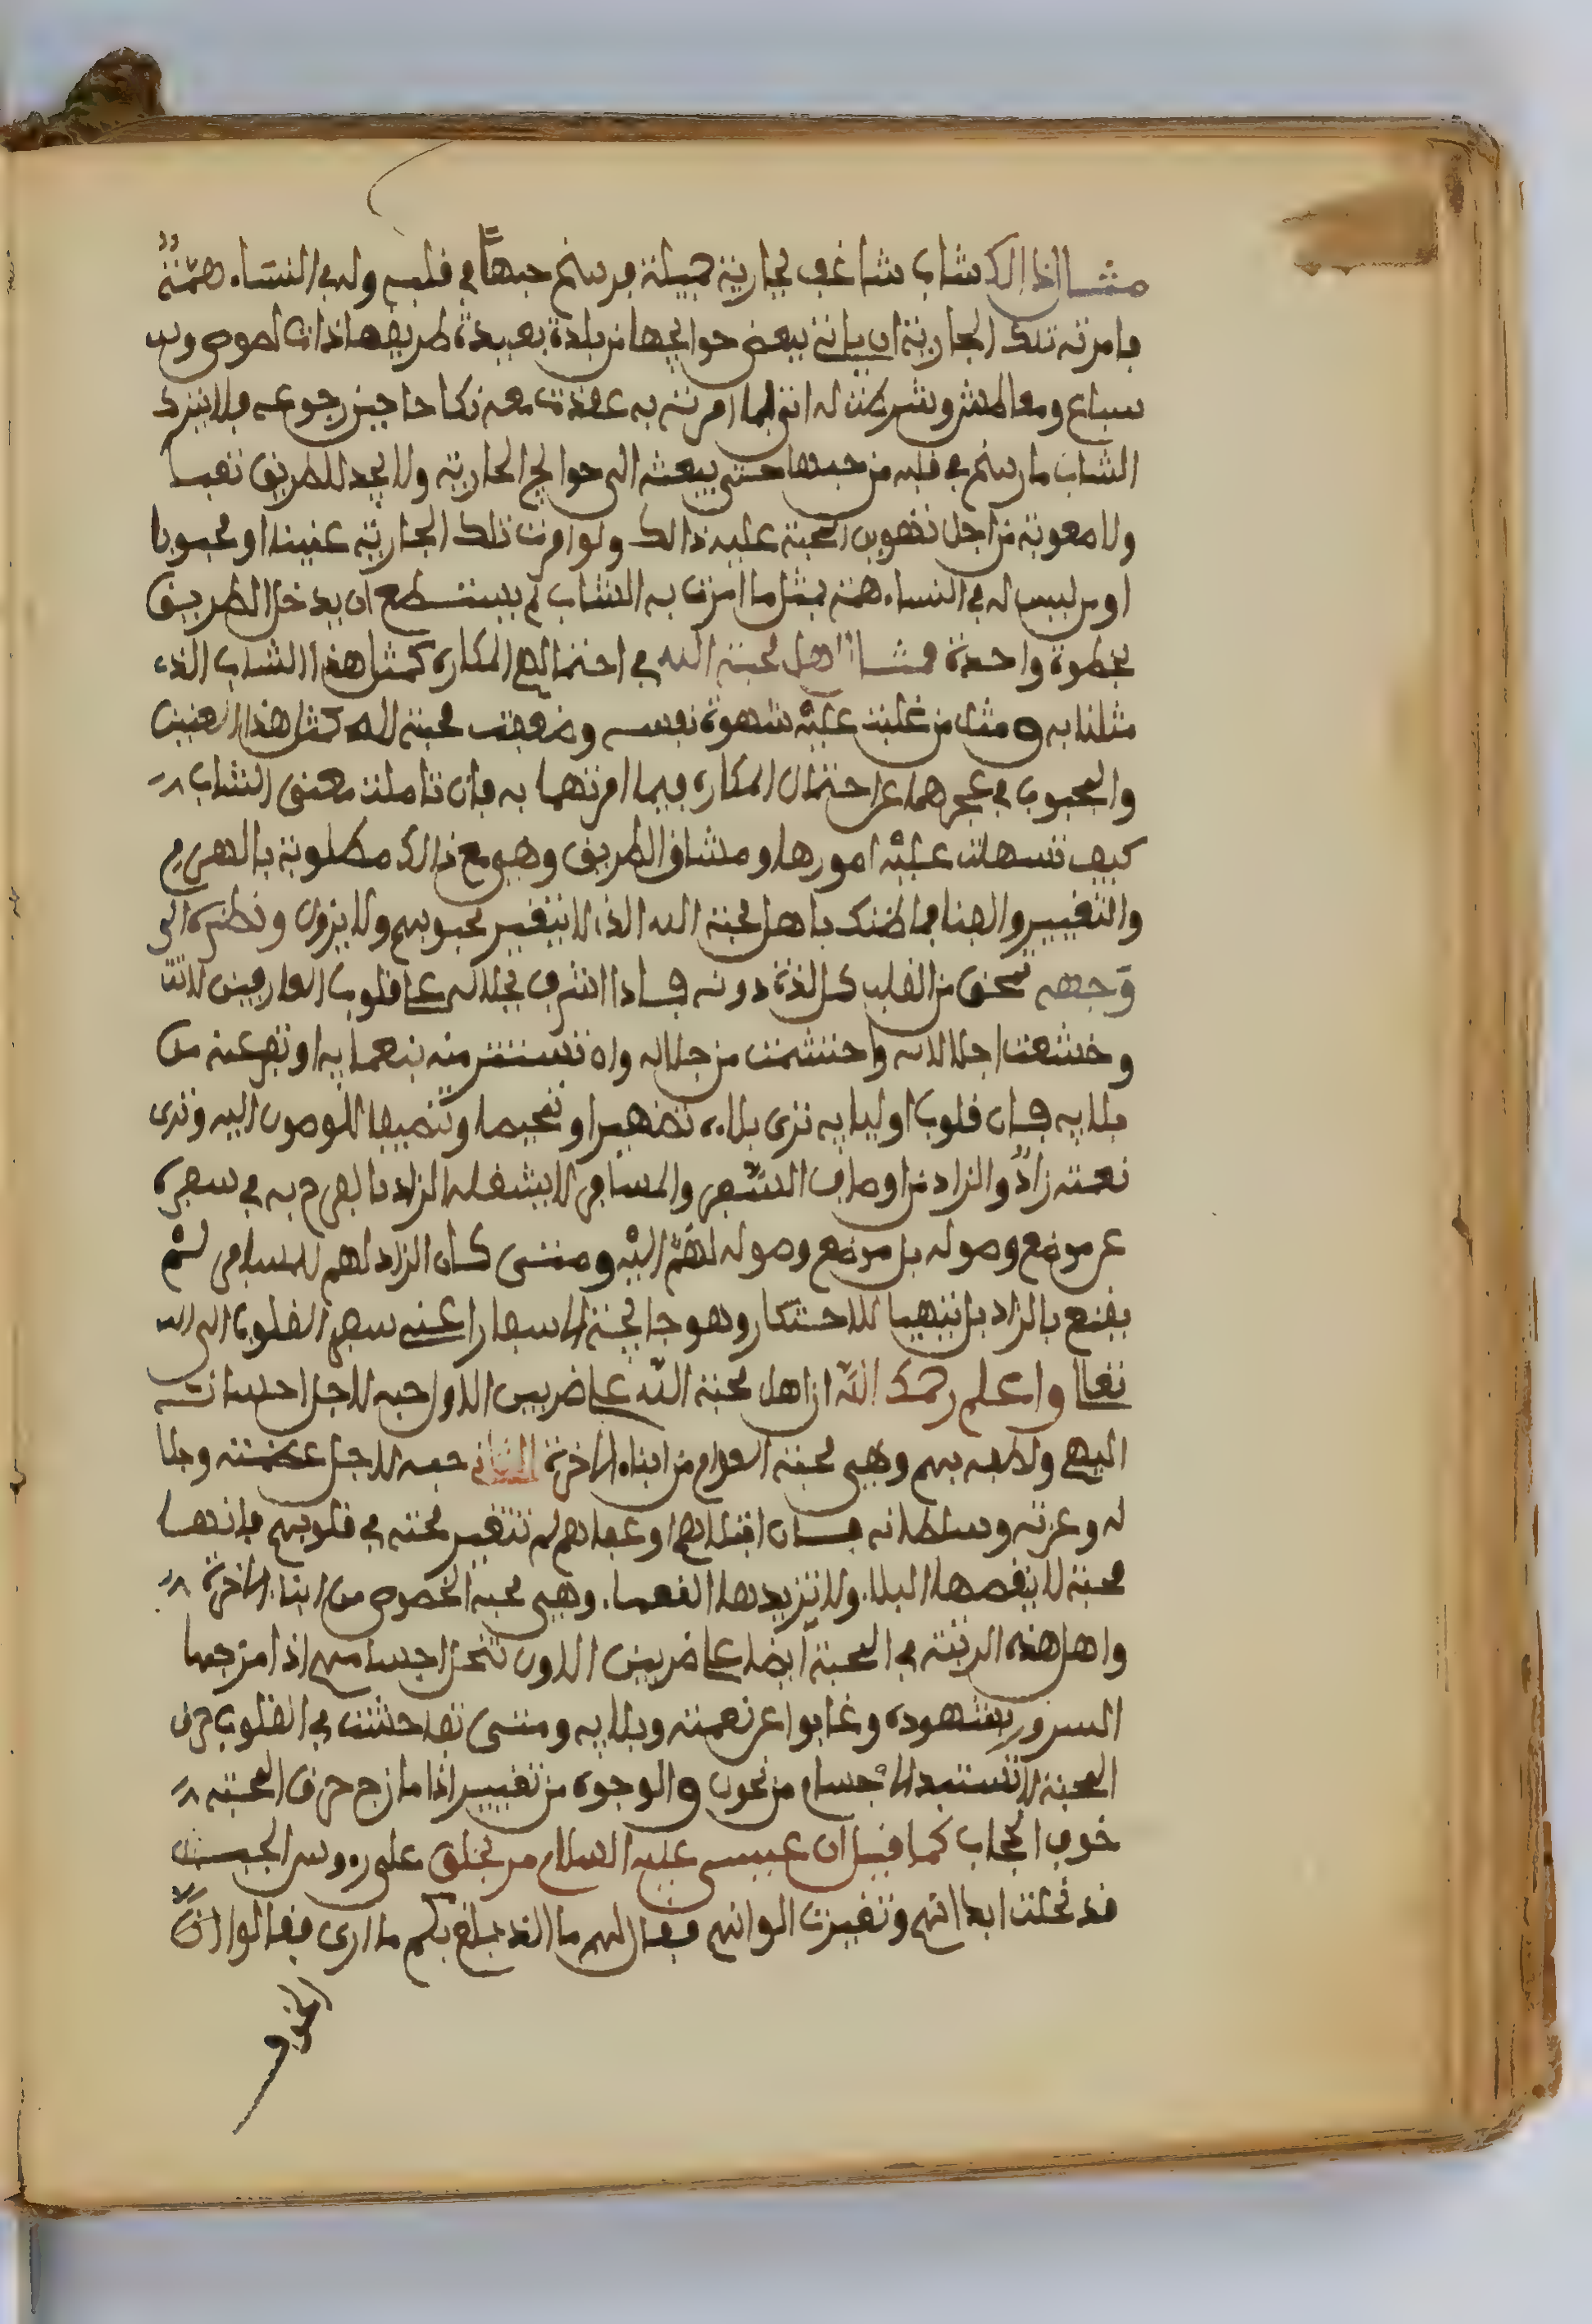 مثال ذالك شاب شاغف بجارية جميلة فرسخ حبها في قلبه وله في النساء همّة
فامرته تلك الجارية ان ياتي ببعض حوائجها من بلدة بعيدة طريقها ذات لصوص و
سباع ومعاطش وشرطت له ان اتى بما امرته به عقدت معه نكاحا حين رجوعه فلا يترك
الشاب ما رسخ في قلبه من حبها حتى يبعثه الى حوائج الجارية ولا يجد للطريق تعبا
ولا معوبة من اجل تهوين المحبة عليه ذالك ولو امرت تلك الجارية عنينا او مجبوبا
او من ليس له في النساء همة بمثل ما امرت به الشاب لم يستطع ان يدخل الطريق
بخطوة واحدة فمثال اهل محبة الله في احتمالهم المكاره كمثل هذا الشاب الذي
مثلنا به ومثل من غلبت عليه شهوة نفسه وضعفت محبة الله كمثل هذا العنين
والمجبوب في عجزهما عن احتمال المكاره فيما امرتهما به فان تاملت معنى الشاب
كيف تسهلت عليه امورها ومشاق الطريق وهي مع ذالك مطلوبة بالهرم
والتغيير والفنا فما ظنك باهل محبة الله الذي لا يتغير محبوبهم ولا يزول ونظرة الى
وجهه تمحق من القلب كل لذة دونه فاذا اشرف بجلاله على قلوب العارفين لانت
وخشعت اجلالا له واحتشمت من جلاله واه تستتر منه بنعمايه او تفر عنه من
بلايه فان قلوب اوليايه ترى بلاءه تطهيرا وتمحيصا وتنضيفا للوصول اليه وترى
نعمته زادٌ والزاد من اوصاف السّفر والمسافر لا يشغله الزاد بالفرح به في سفره
عن موضع وصوله بل موضع وصوله اهمّ اليه ومتى كان الزاد لهم للمسافر لم
يقنع بالزاد بل يتهيا للاحتكار وهو جا بجنة الاسفار اعني سفر القلوب الى الله
تعالى واعلم رحمك الله ان اهل محبة الله على ضربين الاول احبه لاجل احسانه
اليهم ولطفه بهم وهي محبة العوام من ابناء الاخرة الثاني حبه لاجل عظمته وجلا
له وعزته وسلطانه فان ابتلاهم او عافاهم لم تتغير محبته في قلوبهم فانها
محبة لا ينقصها البلاء ولا تزيدها النعماء وهي محبة الخصوص من ابناء الاخرة
واهل هذه الرتبة في المحبة ايضا على ضربين الاول تنحل اجسامهم اذا مزجها
السرور بشهوده وغابوا عن نعمته وبلايه ومتى تفاحشت في القلوب حرق
المحبة لا تستبد الاجسام من نحول والوجوه من تغيير اذا مازج حرق المحبة
خوف الحجاب كما قيل ان عيسى عليه السلام مر بخلق على رءوس الجبال
قد نحلت ابدانهم وتغيرت الوانهم فقال لهم ما الذي بلغ بكم ما ارى فقالوا
الخوف